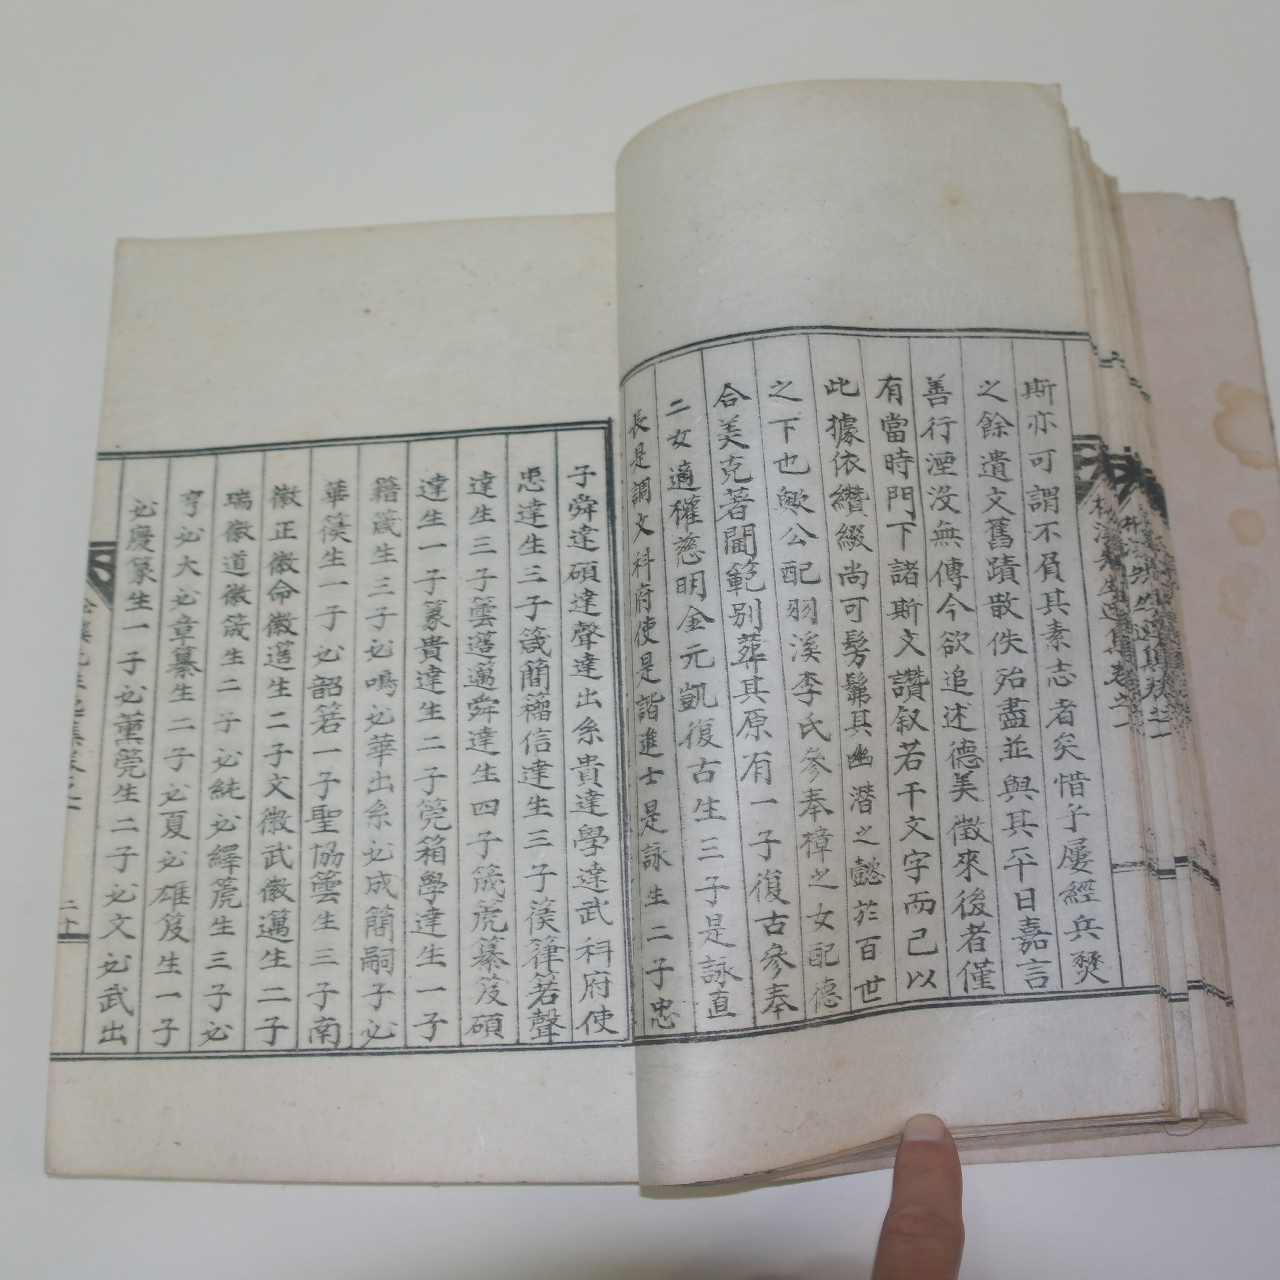 斯亦可謂不負其素志者矣惜乎屢經兵燹
之餘遺文舊蹟散佚殆盡並與其平日嘉言
善行湮沒無傳今欲追述德美徵來後者僅
有當時門下諸斯文讚叙若干文字而已以
此據依纘綴尚可髣髴其幽潛之懿於百世
之下也歟公配羽溪李氏參奉樟之女配德
合美克著閫範別葬其原有一子復古參奉
二女適權慈明金元凱復古生三子是詠直
長是調文科府使是諧進士是詠生二子忠
子舜達碩達聲達出系貴達學達武科府使
忠達生三子箴簡籀信達生三子篌篟若聲
達生三子籉簉邁舜達生四子箴箎纂笈碩
達生一子篆貴達生二子筦箱學達生一子
籍箴生三子必鳴必華出系必成簡嗣子必
華篌生一子必韶箬一子聖協籉生三子南
徽正徽命徽簉生二子文徽武徽邁生二子
瑞徽道徽箴生二子必純必繹箎生三子必
亨必大必章纂生二子必夏必雄笈生一子
必慶篆生一子必薰筦生二子必文必武出
二十